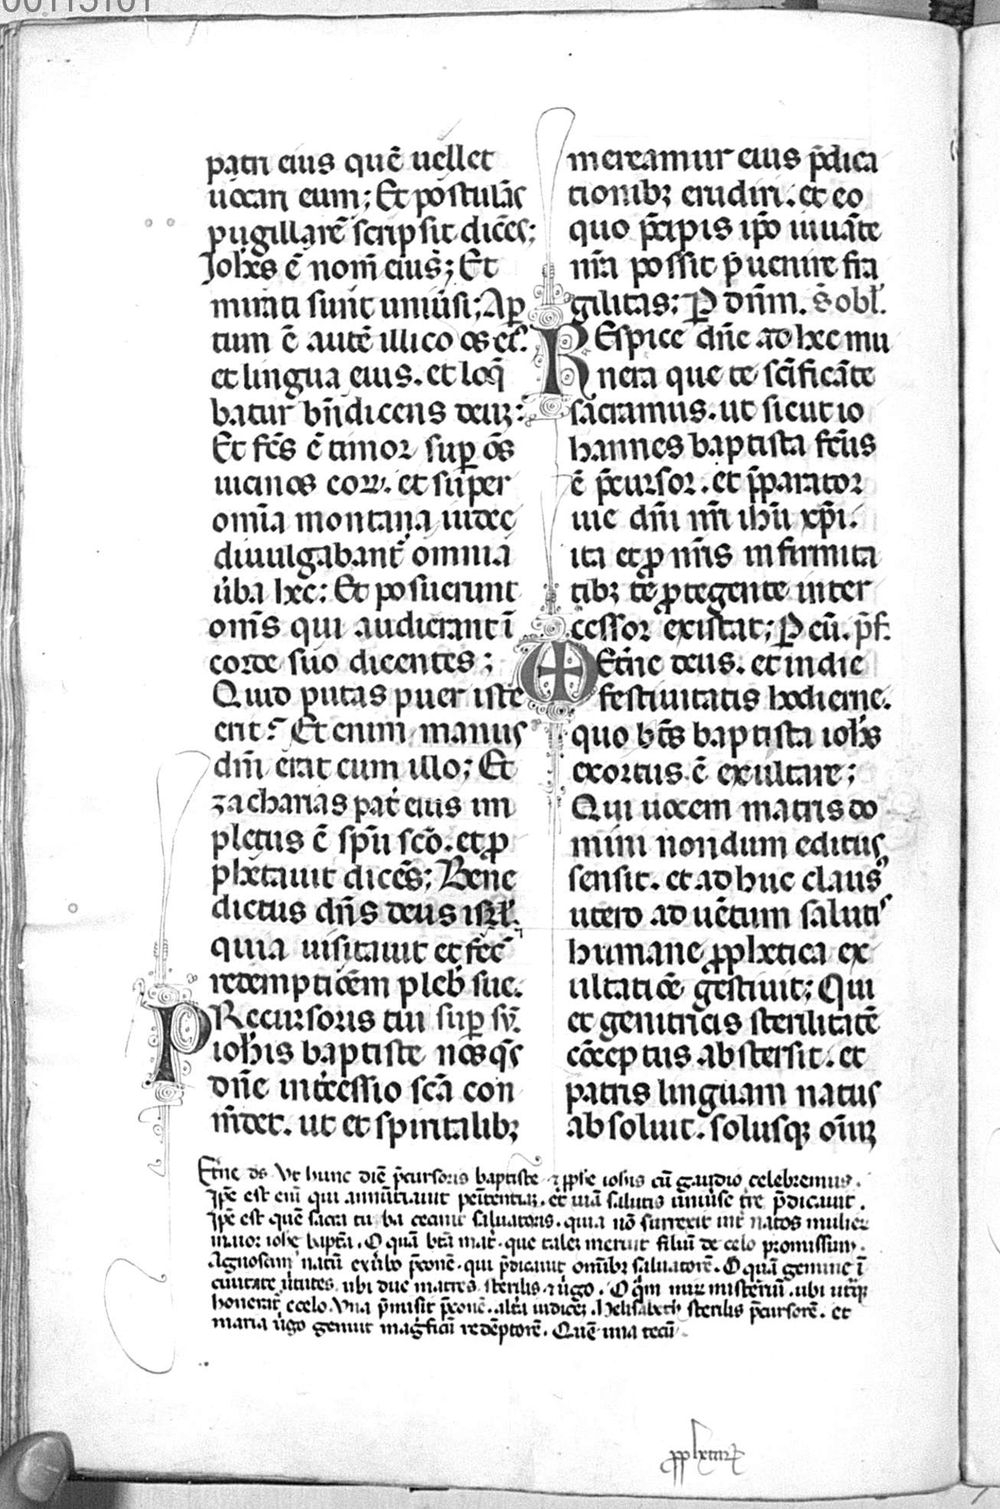 patri eius quē uellet
uocari eum; Et postulās
pugillarē scripsit dicēs;
Joħes ē nom̄ eius; Et
mirati sunt uniūsi; Ap̱
tum ē autē illico os ei᷒.
et lingua eius. et loq̄
batur bn̄dicens deuꝫ:
Et fc̄s ē timor sup̱ os̄
uicinos eoꝝ. et sup̱er
om̄ia montana iudee
diuulgabant᷑ omnia
ūba hec: Et posuerunt
om̄s qui audierant ī
corde suo dicentes;
Quid putas puer iste
erit? Et enim manus
dn̄i erat cum illo; Et
zacharias pat̄ eius im
pletus ē sp̄u sc̄o. et ꝓ
phetauit dicēs; Bene
dictus dn̄s deus isrł.
quia uisitauit et fec̄
redemptiōem pleb̄ sue.
PRecursoris tui sup̱
ioħis baptiste nos qs̄
dn̄e int̄cessio sc̄a con
m̄det. ut et spiritalibꝫ
mereamur eius p̄dica
tionibꝫ erudiri. et eo
quo p̄cipis ip̄o iuuāte
nr̄a possit p̄uenire fra
gilitas: P dn̄m. S̄ obł.
REspice dn̄e ad hec mu
nera que te sc̄ificāte
sac̄ramus. ut sicut io
hannes baptista fc̄us
ē p̄cursor. et p̄parator
uie dn̄i nr̄i ihū xp̄i.
ita et ꝓ nr̄is infirmita
tibꝫ te ꝓtegente inter
cessor existat; P eū. p̄f.
Et̄ne deus. et in die
festiuitatis hodierne.
quo bt̄s baptista ioħes
exortus ē exultare;
Qui uocem matris do
mini nondum editus
sensit. et adhuc claus᷒
utero ad uētum saluti᷒
humane ꝓphetica ex
ultatiōe gestiuit; Qui
et genitricis sterilitatē
cōceptus abstersit. et
patris linguam natus
absoluit. solusqꝫ om̄iꝫ
Et̄ne ds̄ Vt hunc diē p̄cursoris baptiste ⁊ ꝓphe ioħis cū gaudio celebremus.
Ip̄e est eni᷒ qui annūtiauit penitentiaꝫ. et uiā salutis uniūse t̄re p̄dicauit.
Ip̄e est quē sacra tuba cecinit saluatoris. quia nō surrexit int̄ natos mulieꝝ
maior ioħe bapt̄a. O quā bt̄a mat̄. que taleꝫ meruit filiū de celo promissum.
Agnoscam᷒ natū p̄conē. qui p̄dicauit om̄ibꝫ saluatorē. O quā gemine ī
ciuitate ūtutes. ubi due matres. sterilis ⁊ ūgo. O q̄m mir̄ misteriū. ubi
honerat᷑ Vna p̄misit p̄conē. alt̄a iudiceꝫ. Helisabeth sterilis p̄cursorē. et
maria ūgo genuit magificū redēptorē. Quē una tecū.
ꝓphetarꝫ